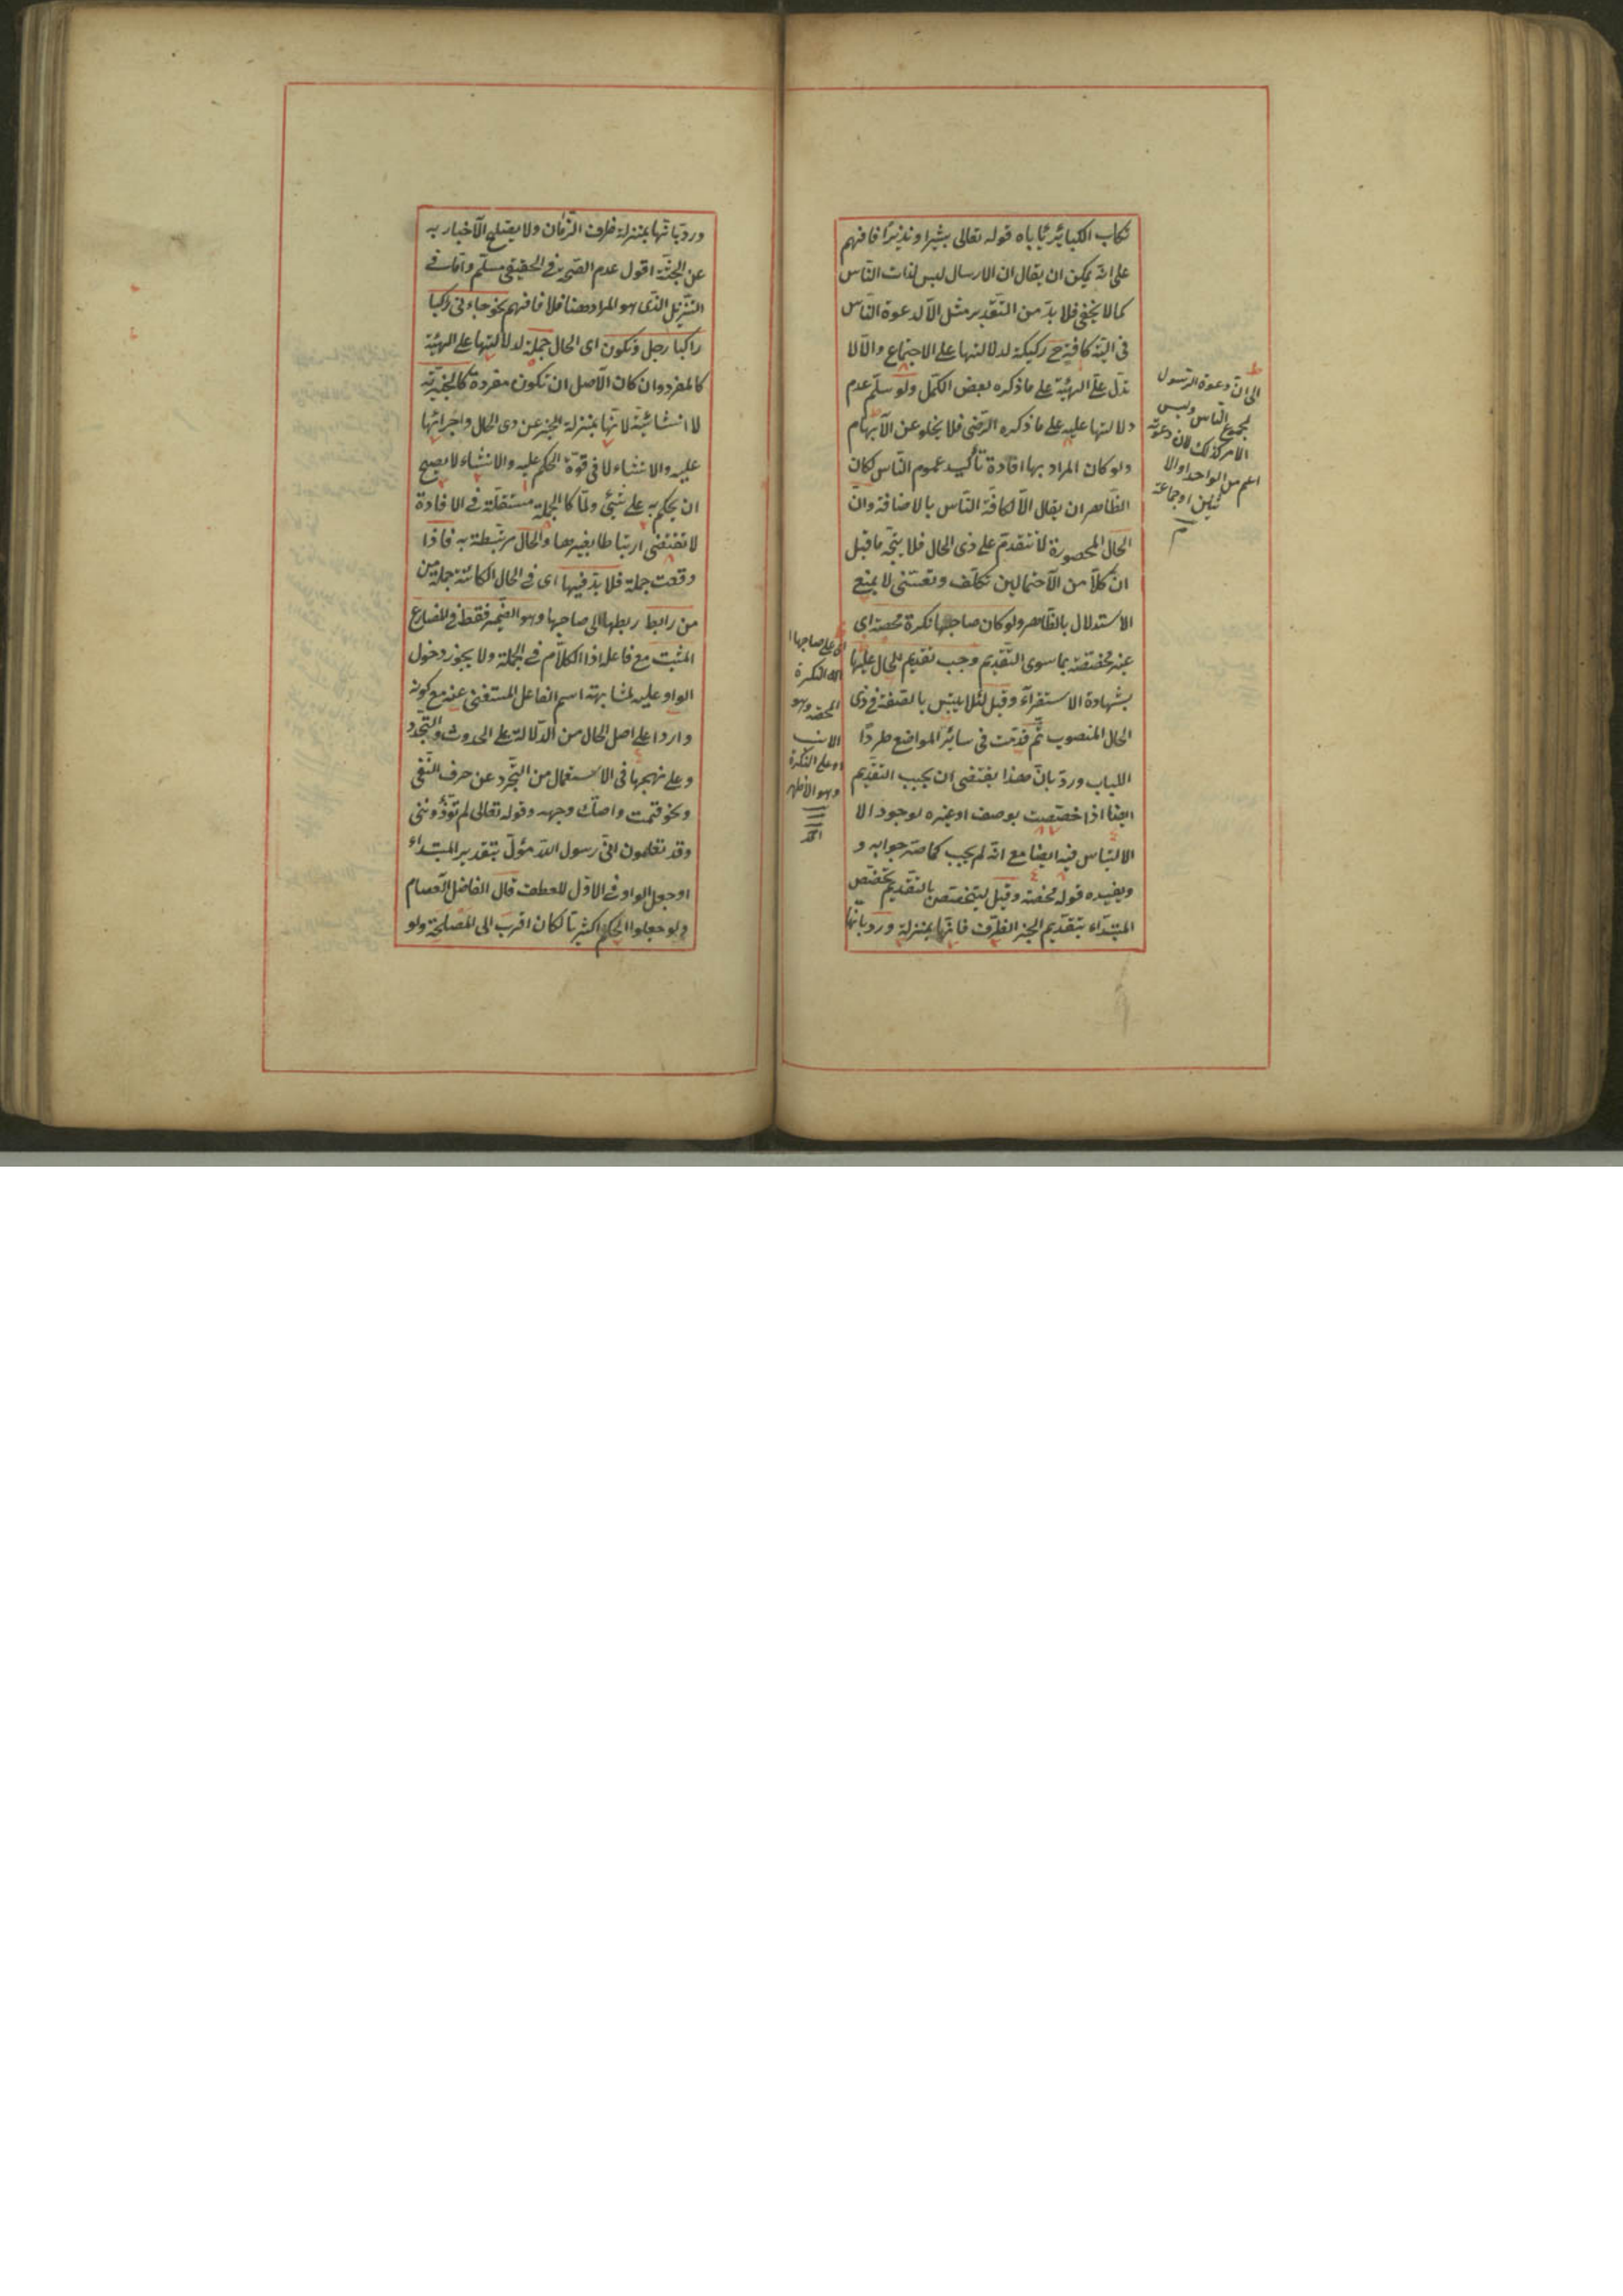 تكاب الكبائر يأباه قوله تعالى بشيرا ونذيرا فافهم
على انه يمكن ان يقال ان الارسال ليس لذات الناس
كما لا يخفى فلا بد من التقدير مثل الا لدعوة الناس
في التنه كافية ح ركيكة لدلالتها على الاجتماع والا لا
تدل على الهيئة على ما ذكره بعض الكمل ولو سلم عدم
دلالتها عليه على ما ذكره الرضى فلا يخلو عن الابهام
ولو كان المراد بها افادة تأكيد عموم الناس لكان
الظاهر ان يقال الا لكافة الناس بالاضافة وان
الحال المحصورة لا تتقدم على ذى الحال فلا يتجه ما قيل
ان كلا من الاحتمالين تكلف وتعسف لا يمنع
الاستدلال بالظاهر ولو كان صاحبها نكرة محضة اى
غير مختصة بما سوى التقديم وجب تقديم الحال عليها
بشهادة الاستقراء وقيل لئلا يلتبس بالصفة في ذى
الحال المنصوب ثم قدمت في سائر المواضع طردا
للباب ورد بان هذا يقتضى ان يجب التقديم
ايضا اذا خصصت بوصف او غيره لوجود الا
الالتباس فيه ايضا مع انه لم يجب كما صر جوابه و
ويفيده قوله محضة وقيل ليتخصص بالتقديم تخصص
المبتداء بتقديم الخبر الظرف فانها بمنزلة ورد بانها
الى ان دعوة الرسول
لجميع الناس وليس
الامر كذلك لان دعوته
اعم من الواحد او الا
ثنين او جماعة
م
اى على صاحبها
النكرة
المحضة وهو
الانسب
او على النكرة
وهو الاظهر
ورد بانها بمنزلة ظرف الزمان ولا يصلح الاخبار به
عن الجثة اقول عدم الصحة في الحقيقى مسلم واما في
التنزيل الذى هو المراد ههنا فلا فافهم نحو جاءنى راكبا
راكبا رجل وتكون اى الحال جملة لدلالتها على الهيئة
كالمفرد وان كان الاصل ان تكون مفردة كالخبرية
لا انشائية لانها بمنزلة الخبر عن ذى الحال واجرائها
عليه والانشاء لا في قوة الحكم عليه والانشاء لا يصح
ان يحكم به على شئ ولما كا الجملة مستقلة في الافادة
لا تقتضى ارتباطا بغيرها والحال مرتبطة به فاذا
وقعت جملة فلا بد فيها اى في الحال الكائنة جملة من
من رابط ربطها الى صاحبها وهو الضمير فقط في المضارع
المثبت مع فاعله اذا الكلام في الجملة ولا يجوز دخول
الواو عليه لمشابهته اسم الفاعل المستغنى عنه مع كونه
واردا على اصل الحال من الدلالة على الحدوث والتجدد
وعلى نهجها في الاستعمال من التجرد عن حرف النفى
ونحو قمت واصك وجهه وقوله تعالى لم تؤذوننى
وقد تعلمون انى رسول الله مؤول بتقدير المبتداء
او جعل الواو في الاول للعطف قال الفاضل العصام
ولو جعلوا الحكم اكثريا لكان اقرب الى المصلحة ولو